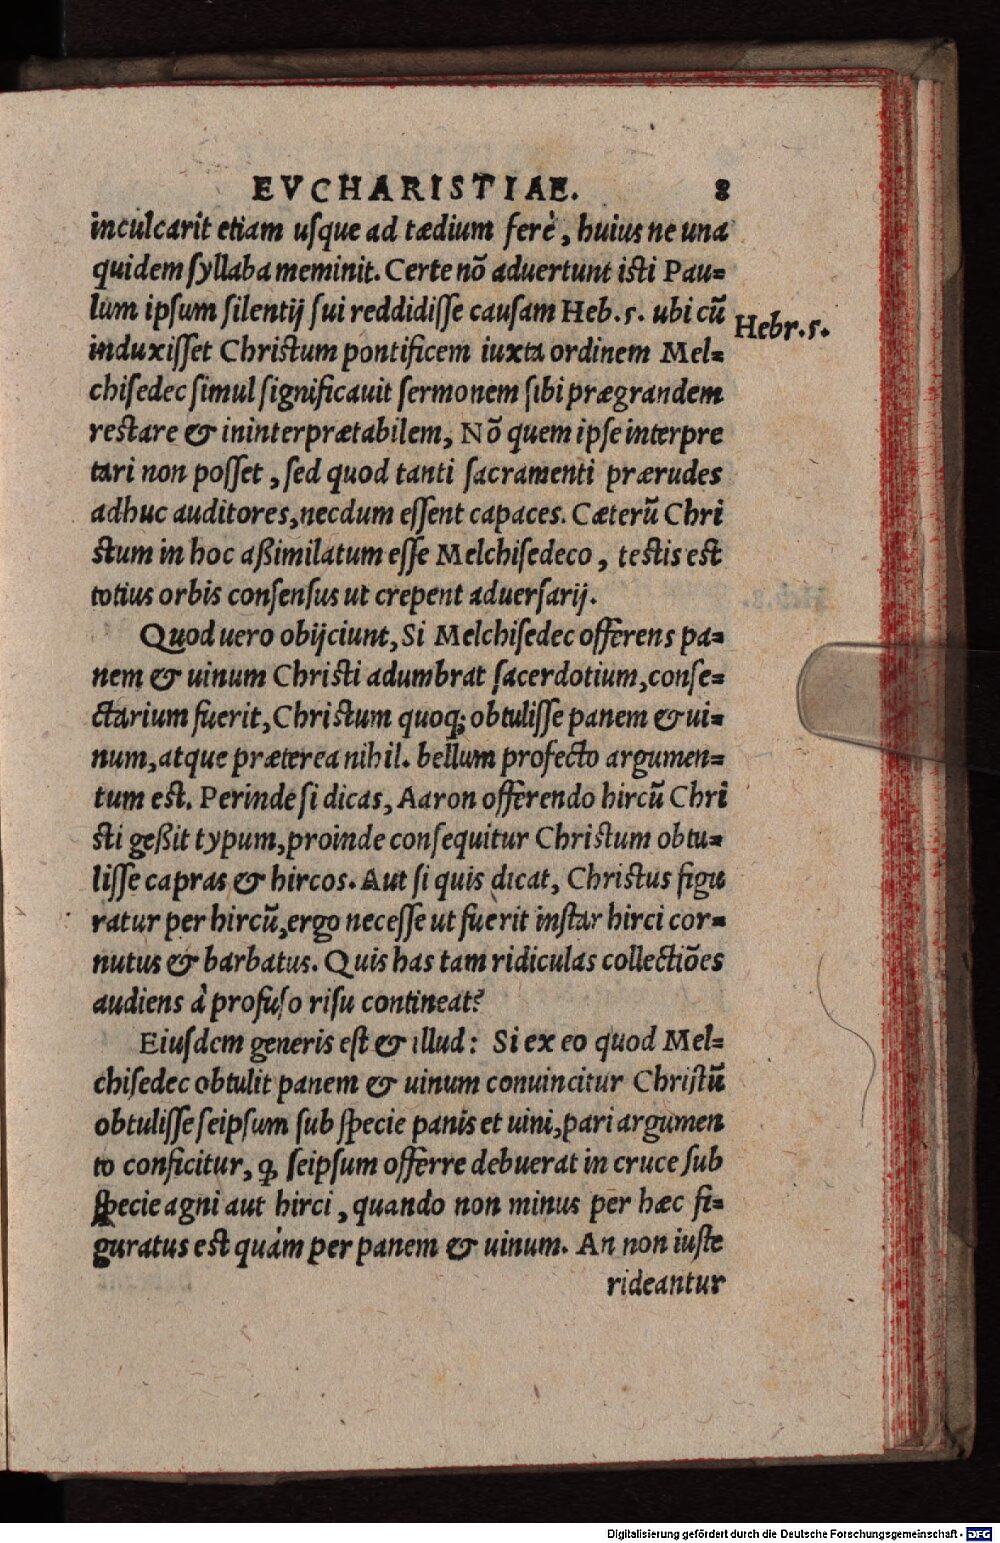 EVCHARISTIAE. 8
inculcarit etiam uſque ad tædium ferè, huius ne una
quidem ſyllaba meminit. Certe nõ aduertunt iſti Pau=
lum ipſum ſilentij ſui reddidiſſe cauſam Heb. 5. ubi cũ
Hebr. 5.
induxiſſet Chriſtum pontificem iuxta ordinem Mel=
chiſedec ſimul ſignificauit ſermonem ſibi prægrandem
reſtare & ininterprætabilem, Nõ quem ipſe interpre
tari non poſſet, ſed quod tanti ſacramenti prærudes
adhuc auditores, necdum eſſent capaces. Cæterũ Chri
ſtum in hoc aßimilatum eſſe Melchiſedeco, teſtis eſt
totius orbis conſenſus ut crepent aduerſarij.
Quod uero obijciunt, Si Melchiſedec offerens pa=
nem & uinum Chriſti adumbrat ſacerdotium, conſe=
ctarium fuerit, Chriſtum quoq; obtuliſſe panem & ui=
num, atque præterea nihil. bellum profecto argumen=
tum eſt. Perinde ſi dicas, Aaron offerendo hircũ Chri
ſti geßit typum, proinde conſequitur Chriſtum obtu=
liſſe capras & hircos. Aut ſi quis dicat, Chriſtus figu
ratur per hircũ, ergo neceſſe ut fuerit inſtar hirci cor=
nutus & barbatus. Quis has tam ridiculas collectiões
audiens à profuſo riſu contineat?
Eiuſdem generis eſt & illud: Si ex eo quod Mel=
chiſedec obtulit panem & uinum conuincitur Chriſtũ
obtuliſſe ſeipſum ſub ſpecie panis et uini, pari argumen
to conficitur, ꝙ ſeipſum offerre debuerat in cruce ſub
ſpecie agni aut hirci, quando non minus per hæc fi=
guratus eſt quàm per panem & uinum. An non iuſte
rideantur
Digitalisierung gefördert durch die Deutsche Forschungsgemeinschaft - DFG